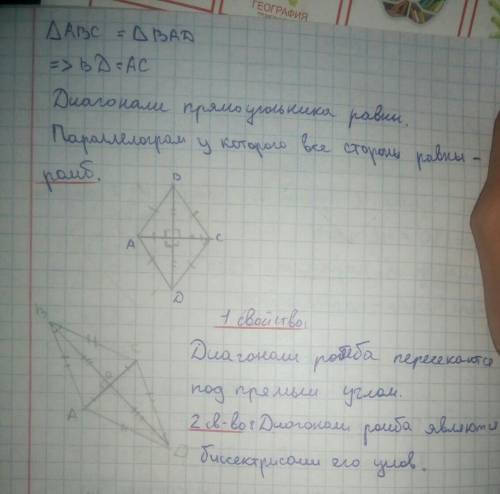 ГЕОГРАФИЯ
△ABC = △BAD
=> BD = AC
Диагонали прямоугольника равны.
Параллелограм у которого все стороны равны -
ромб.
B
A
C
D
1 свойство.
B
C
Диагонали ромба пересекаются
под прямым углом.
A
O
2 св-во: Диагонали ромба являются
D
биссектрисами его углов.